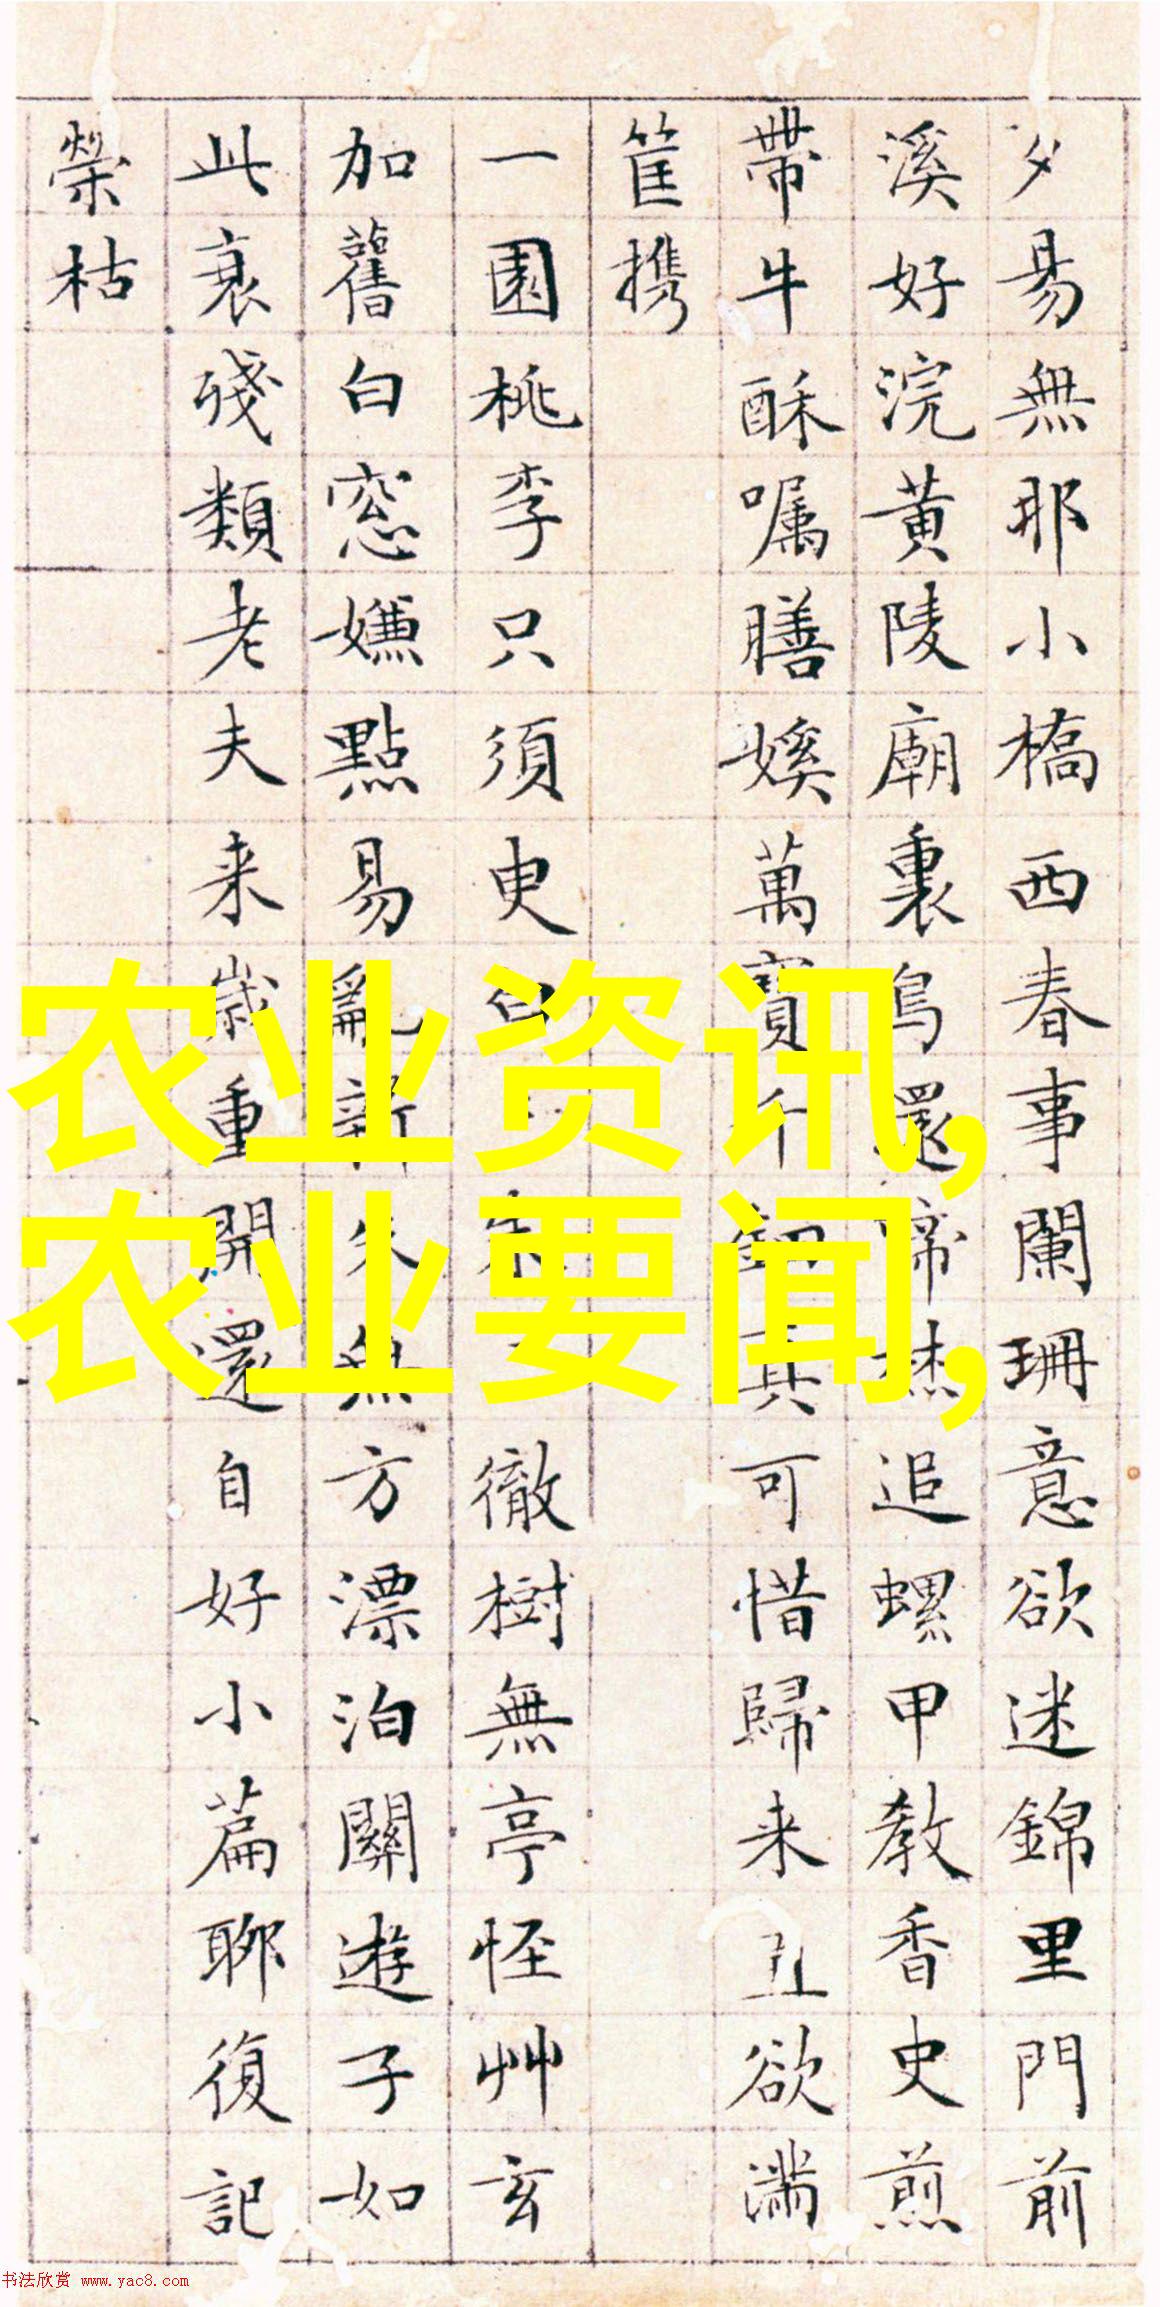 夕易無那小橋西春事闌珊意欲迷錦里門前
溪好浣黄陵廟裏還啼追螺甲教香史煎
帶牛酥嘱膳萬寶千釵真可惜歸来丑欲满
筐携
一園桃李只須臾白徹樹無亭怪艸玄
加舊白窓嫌點易亂新朱無方漂泊關遊子如
此衰殘類老夫来歳重開還自好小篇聊復記
榮枯
农业资讯,
农业要闻,
书法欣赏 www.yac8.com